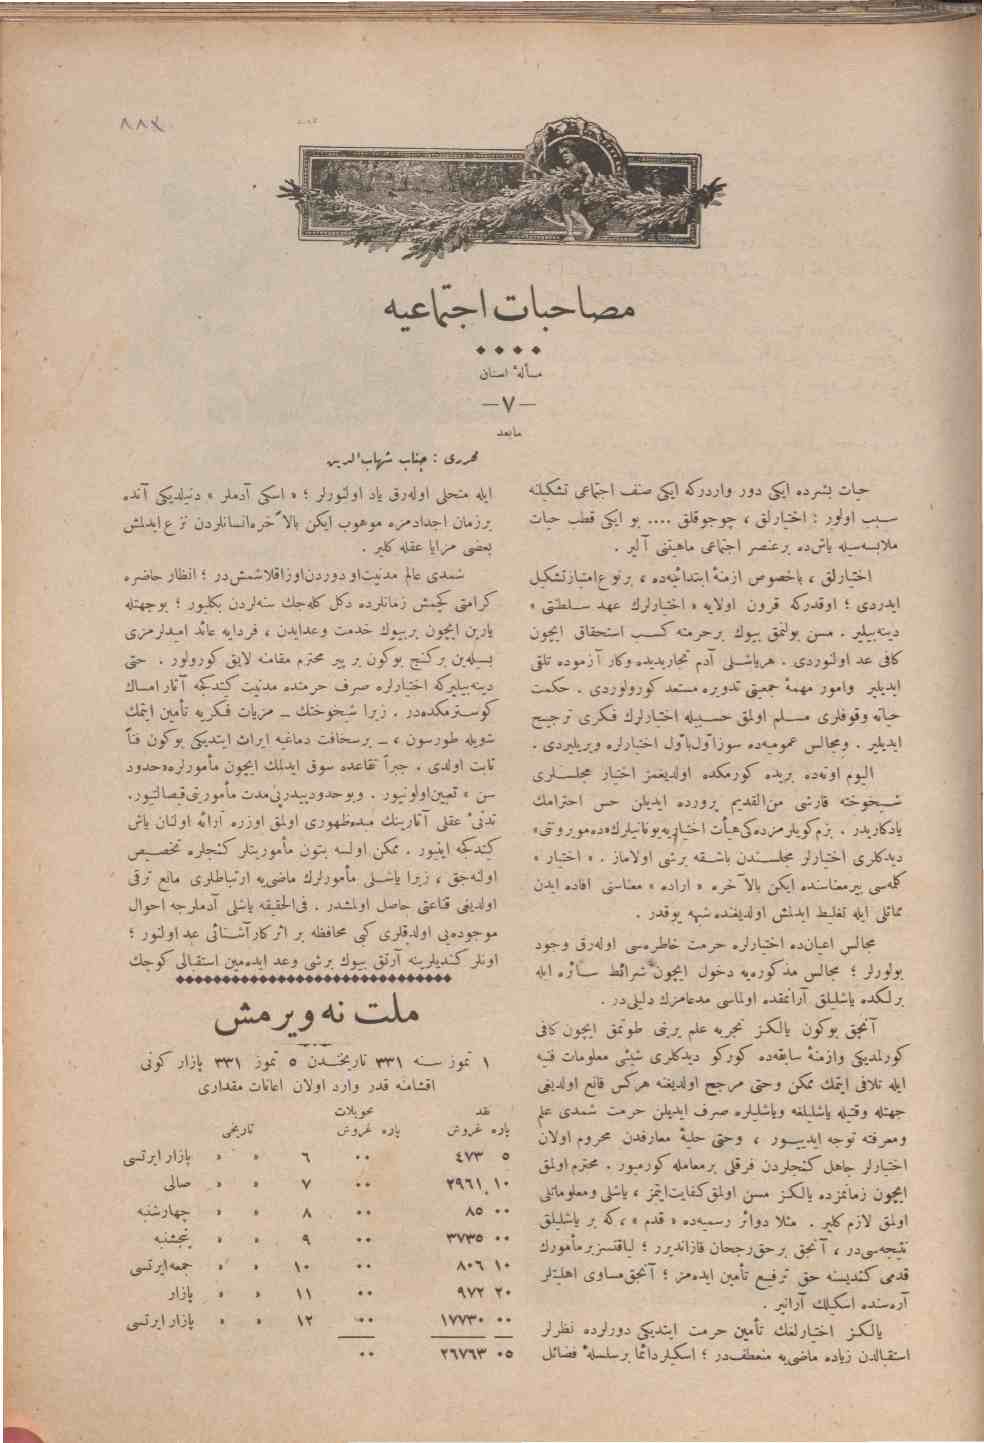 ٨٨٤
مصاحبات اجتماعیه
مسألهٔ اسنان
— ٧ —
مابعد
محرری : جناب شهاب‌الدین
حیات بشرده ایکی دور واردرکه ایکی صنف اجتماعی تشکیلنه
سبب اولور : اختیارلق ، چوجوقلق .... بو ایکی قطب حیات
ملابسه‌سیله یاش‌ده برعنصر اجتماعی ماهیتنی آلیر .
اختیارلق ، باخصوص ازمنهٔ ابتدائیه‌ده ، برنوع امتیاز تشکیل
ایدردی ؛ اوقدرکه قرون اولایه « اختیارلرك عهد سلطنتی »
دینه‌بیلیر . مسن بولنمق بیوك برحرمته کسب استحقاق ایچون
کافی عد اولنوردی . هریاشلی آدم تجاربدیده وکار آزموده تلقی
ایدیلیر وامور مهمهٔ جمعیتی تدویره مستعد کورولوردی . حکمت
حیاته وقوفلری مسلم اولمق حسبیله اختیارلرك فکری ترجیح
ایدیلیر . ومجالس عمومیه‌ده سوز اول‌بأول اختیارلره ویریلیردی .
الیوم اوته‌ده بریده کورمکده اولدیغمز اختیار مجلسلری
شیخوخته قارشی من‌القدیم پرورده ایدیلن حس احترامك
یادکاریدر . بزم کویلرمزده‌کی هیأت اختیاریه‌یونانیلرك «ده‌موروتی»
دیدکلری اختیارلر مجلسندن باشقه برشی اولاماز . « اختیار »
کلمه‌سی پیرمعناسنده ایکن بالآخره « اراده » معناسنی افاده ایدن
مماثلی ایله تغلیط ایدلمش اولدیغنده شبهه یوقدر .
مجالس اعیان‌ده اختیارلره حرمت خاطره‌سی اوله‌رق وجود
بولورلر ؛ مجالس مذکوره‌یه دخول ایچون شرائط سائره ایله
برلکده یاشلیلق آرانمقده اولماسی مدعامزك دلیلی‌در .
آنجق بوکون یالکز تجربه علم یرینی طوتمق ایچون کافی
کورلمدیکی وازمنهٔ سابقه‌ده کورکو دیدکلری شیئی معلومات فنیه
ایله تلافی ایتمك ممکن وحتی مرجح اولدیغنه هرکس قانع اولدیغی
جهتله وقتیله یاشلیلغه ویاشلیلره صرف ایدیلن حرمت شمدی علم
ومعرفته توجه ایدییور ، وحتی حلیهٔ معارفدن محروم اولان
اختیارلر جاهل کنجلردن فرقلی برمعامله کورمیور . محترم اولمق
ایچون زمانمزده یالکز مسن اولمق کفایت ایتمز ، یاشلی ومعلوماتلی
اولمق لازم کلیر . مثلا دوائر رسمیه‌ده « قدم » ، که بر یاشلیلق
نتیجه‌سی‌در ، آنجق برحق رجحان قازاندیرر ؛ لیاقتسز برمأمورك
قدمی کندیسنه حق ترفیع تأمین ایده‌مز ؛ آنجق مساوی اهلیتلر
آره‌سنده اسکیلك آرانیر .
یالکز اختیارلغك تأمین حرمت ایتدیکی دورلرده نظرلر
استقبالدن زیاده ماضی‌یه منعطف‌در ؛ اسکیلر دائما برسلسلهٔ فضائل
ایله متحلی اوله‌رق یاد اولنورلر ؛ « اسکی آدملر » دنیلدیکی آنده
برزمان اجدادمزه موهوب ایکن بالآخره‌انسانلردن نزع ایدلمش
بعضی مزایا عقله کلیر .
شمدی عالم مدنیت او دوردن اوزاقلاشمش‌در ؛ انظار حاضره
کرامتی کچمش زمانلرده دکل کله‌جك سنه‌لردن بکلیور ؛ بوجهتله
یارین ایچون بریوك خدمت وعدایدن ، فردایه عائد امیدلرمزی
بسیله‌ین برکنج بوکون بر پیر محترم مقامنه لایق کورولور . حتی
دینه‌بیلیرکه اختیارلره صرف حرمتده مدنیت کیتدکجه آثار امساك
کوسترمکده‌در . زیرا شیخوختك ــ مزیات فکریه تأمین ایتمك
شویله طورسون ، ــ برسخافت دماغیه ایراث ایتدیکی بوکون فناً
ثابت اولدی . جبراً تقاعده سوق ایدلمك ایچون مأمورلره «حدود
سن » تعیین اولونیور . وبو حدود بیدرپی مدت مأموریتی قیصالتیور.
تدنیٔ عقلی آثارینك مبدءظهوری اولمق اوزره ارائه اولنان یاش
کیتدکجه اینیور . ممکن اولسه بتون مأموریتلر کنجلره تخصیص
اولنه‌جق ، زیرا یاشلی مأمورلرك ماضی‌یه ارتباطلری مانع ترقی
اولدیغی قناعتی حاصل اولمشدر . فی‌الحقیقه یاشلی آدملرجه احوال
موجوده‌یی اولدقلری کبی محافظه بر اثر کارآشنائی عد اولنور ؛
اونلر کندیلرینه آرتق بیوك برشی وعد ایده‌مین استقبالی کوجك
ملت نه ویرمش
١ تموز سنه ٣٣١ تاریخندن ٥ تموز ٣٣١ پازار کونی
اقشامنه قدر وارد اولان اعانات مقداری
نقد  تحویلات
پاره غروش  پاره غروش  تاریخی
٥ ٤٧٣  ٠٠  ٦ » » پازار ایرتسی
١٠ ٢٩٦١  ٠٠  ٧ » » صالی
٠٠ ٨٥  ٠٠  ٨ » » چهارشنبه
٠٠ ٣٧٣٥  ٠٠  ٩ » » پنجشنبه
١٠ ٨٠٦  ٠٠  ١٠ » » جمعه‌ایرتسی
٢٠ ٩٧٢  ٠٠  ١١ » » پازار
٠٠ ١٧٧٣٠  ٠٠  ١٢ » » پازار ایرتسی
٠٥ ٢٦٧٦٣  ٠٠